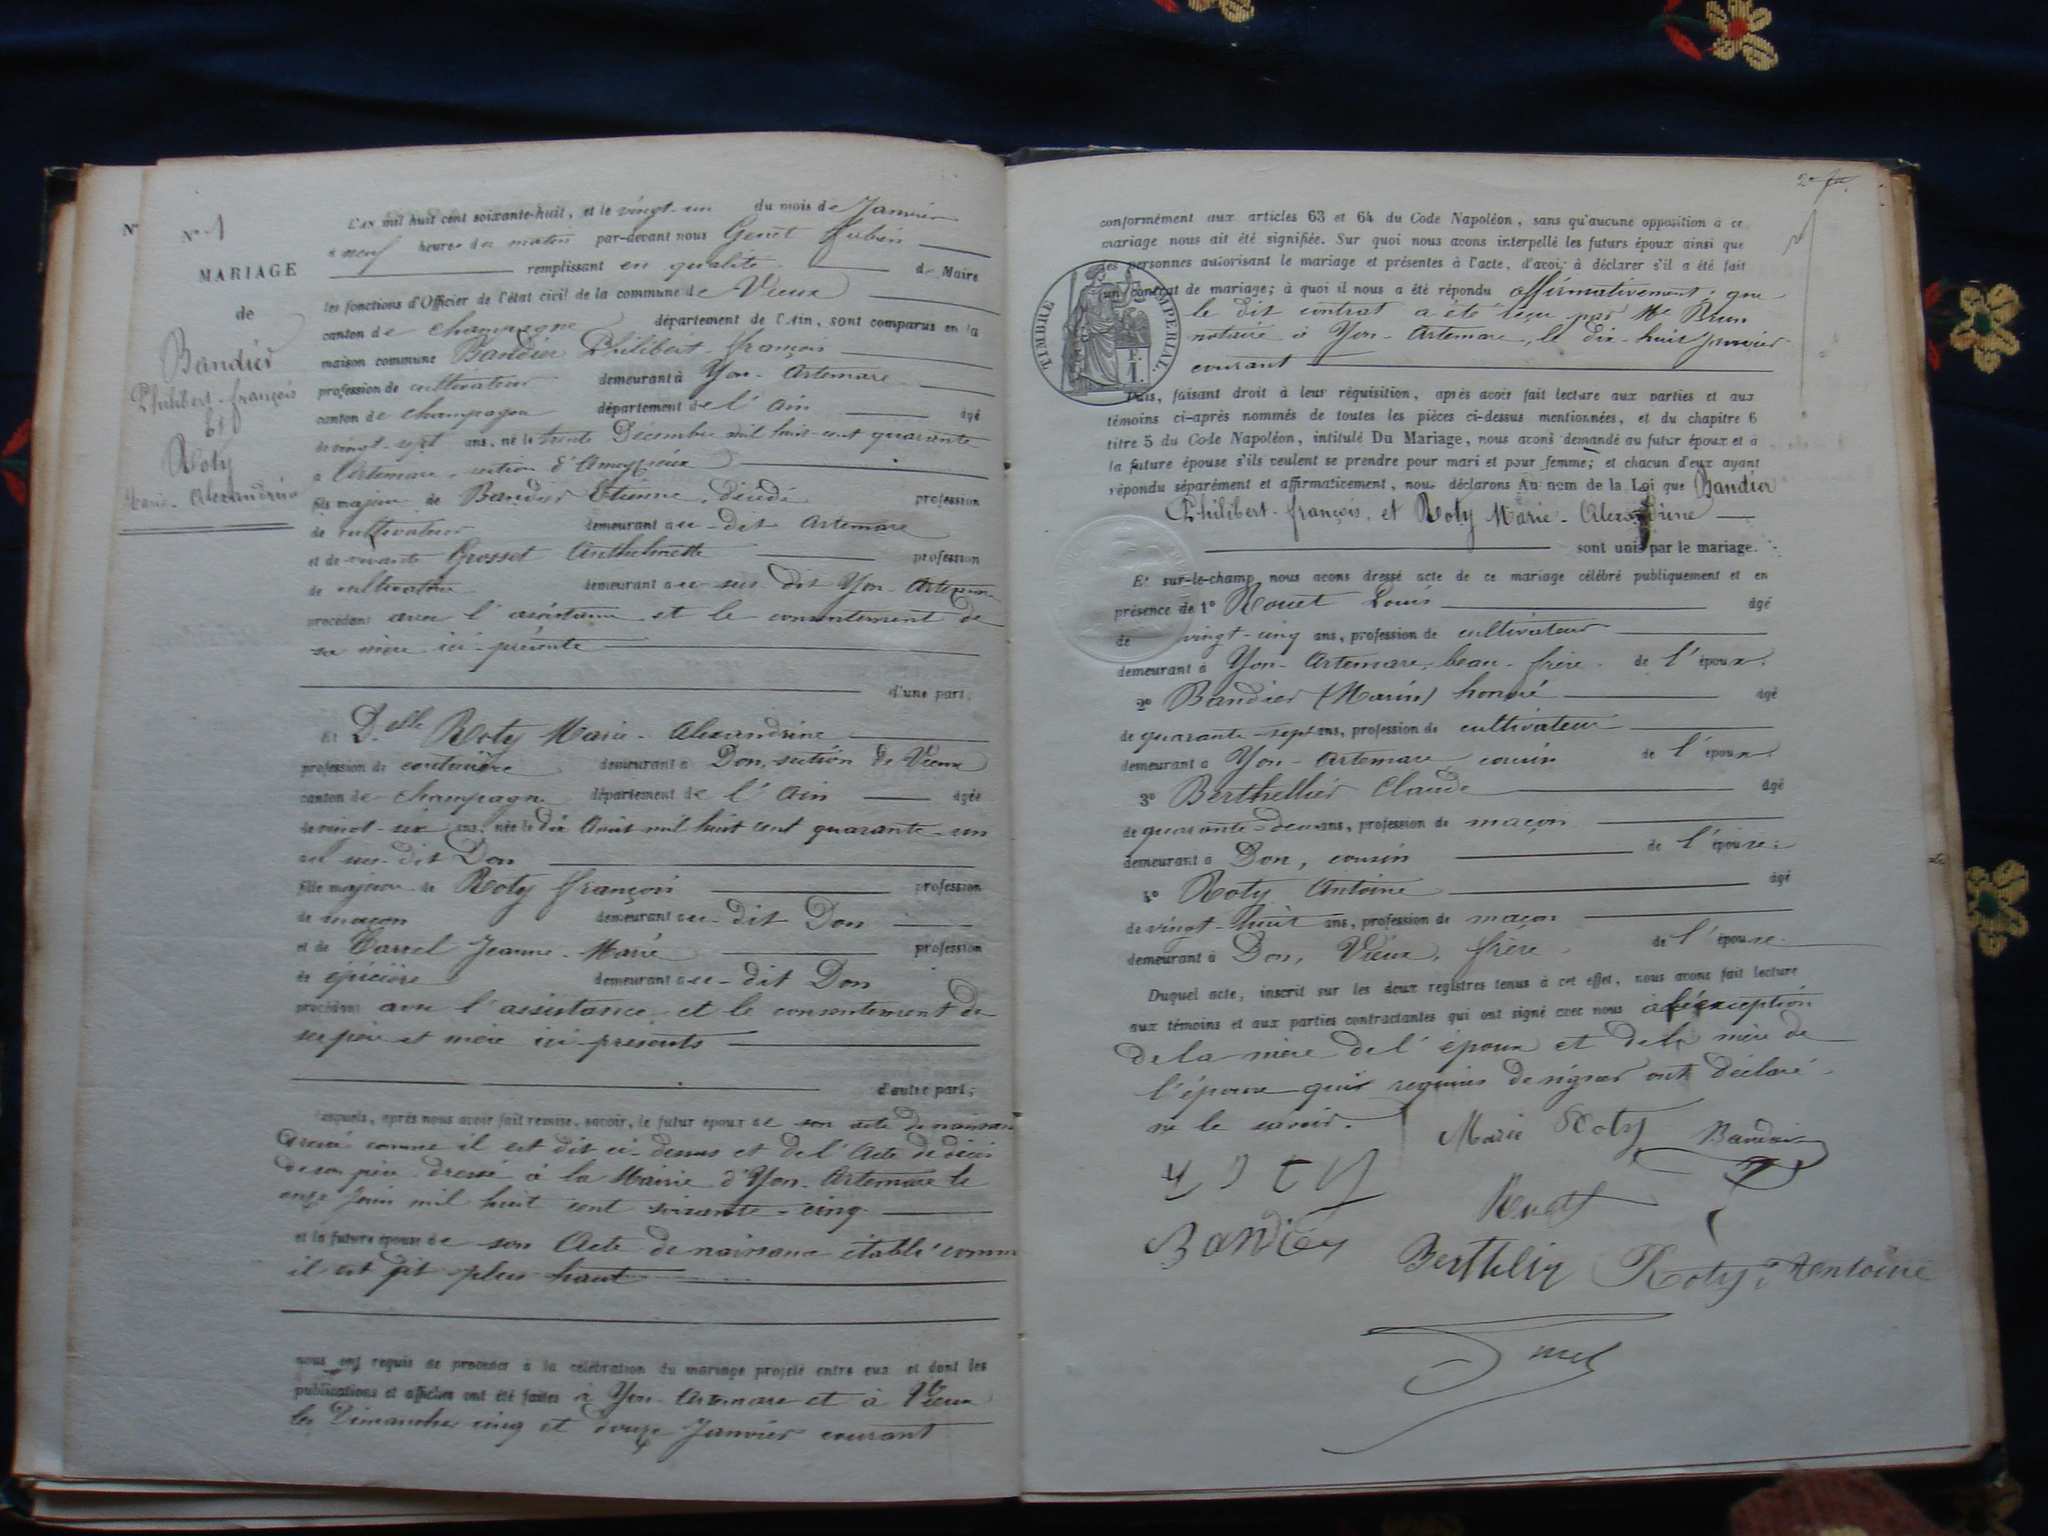 N° 1
MARIAGE
de
Bandier
Philibert-françois
Et
Roty
Marie-Alexandrine
L'an mil huit cent soixante-huit, et le vingt-un du mois de Janvier
à neuf heures du matin par-devant nous Genet
remplissant en qualité de Maire
les fonctions d'Officier de l'état civil de la commune de Vieux
canton de Champagne département de l'Ain, sont comparus en la
maison commune Bandier Philibert-françois
profession de cultivateur demeurant à Yon-Artemare
canton de champagne département de l'Ain âgé
de vingt-sept ans, né le trente Décembre mil huit-cent quarante
à Artemare, section d'Ameyzieux
fils majeur de Bandier Etienne, décédé profession
de cultivateur demeurant au-dit Artemare
et de vivante Grosset Anthelmette profession
de cultivatrice demeurant au-sus-dit Yon-Artemare
procédant avec l'assistance et le consentement de
sa mère ici-présente
d'une part,
Et D.elle Roty Marie-Alexandrine
profession de couturière demeurant à Don, section de Vieux
canton de champagne département de l'Ain âgée
de vingt-six ans, née le dix Août mil huit cent quarante-un
au sus-dit Don
fille majeure de Roty françois profession
de maçon demeurant au-dit Don
et de Carrel Jeanne-Marie profession
de épicière demeurant au-dit Don
procédant avec l'assistance et le consentement de
ses père et mère ici-présents
d'autre part;
Lesquels, après nous avoir fait remise, savoir, le futur époux de son acte de naissance
dressé comme il est dit ci-dessus et de l'Acte de décès
de son père dressé à la Mairie d'Yon-Artemare le
onze Juin mil huit cent soixante-cinq
et la future épouse de son Acte de naissance établi comme
il est dit plus haut
nous ont requis de procéder à la célébration du mariage projeté entre eux et dont les
publications et affiches ont été faites à Yon-Artemare et à Vieux
les Dimanches cinq et douze Janvier courant
conformément aux articles 63 et 64 du Code Napoléon, sans qu'aucune opposition à ce
mariage nous ait été signifiée. Sur quoi nous avons interpellé les futurs époux ainsi que
les personnes autorisant le mariage et présentes à l'acte, d'avoir à déclarer s'il a été fait
un contrat de mariage; à quoi il nous a été répondu affirmativement; que
le dit contrat a été reçu par Me Brun
notaire à Yon-Artemare, le dix-huit Janvier
courant
TIMBRE IMPERIAL
Puis, faisant droit à leur réquisition, après avoir fait lecture aux parties et aux
témoins ci-après nommés de toutes les pièces ci-dessus mentionnées, et du chapitre 6
titre 5 du Code Napoléon, intitulé Du Mariage, nous avons demandé au futur époux et à
la future épouse s'ils veulent se prendre pour mari et pour femme; et chacun d'eux ayant
répondu séparément et affirmativement, nous déclarons Au nom de la Loi que Bandier
Philibert-françois, et Roty Marie-Alexandrine
sont unis par le mariage.
Et sur-le-champ nous avons dressé acte de ce mariage célébré publiquement et en
présence de 1° Rouet Louis âgé
de vingt-cinq ans, profession de cultivateur
demeurant à Yon-Artemare, beau-frère de l'époux.
2° Bandier (Marin) honoré âgé
de quarante-sept ans, profession de cultivateur
demeurant à Yon-Artemare cousin de l'époux
3° Berthellier Claude âgé
de quarante-deux ans, profession de maçon
demeurant à Don, cousin de l'épouse.
4° Roty Antoine âgé
de vingt-huit ans, profession de maçon
demeurant à Don, Vieux, frère de l'épouse.
Duquel acte, inscrit sur les deux registres tenus à cet effet, nous avons fait lecture
aux témoins et aux parties contractantes qui ont signé avec nous à l'exception
de la mère de l'époux et de la mère de
l'épouse qui requises de signer ont déclaré
ne le savoir.
Marie Roty Bandier
Rouet
Bandier Berthelier Roty Antoine